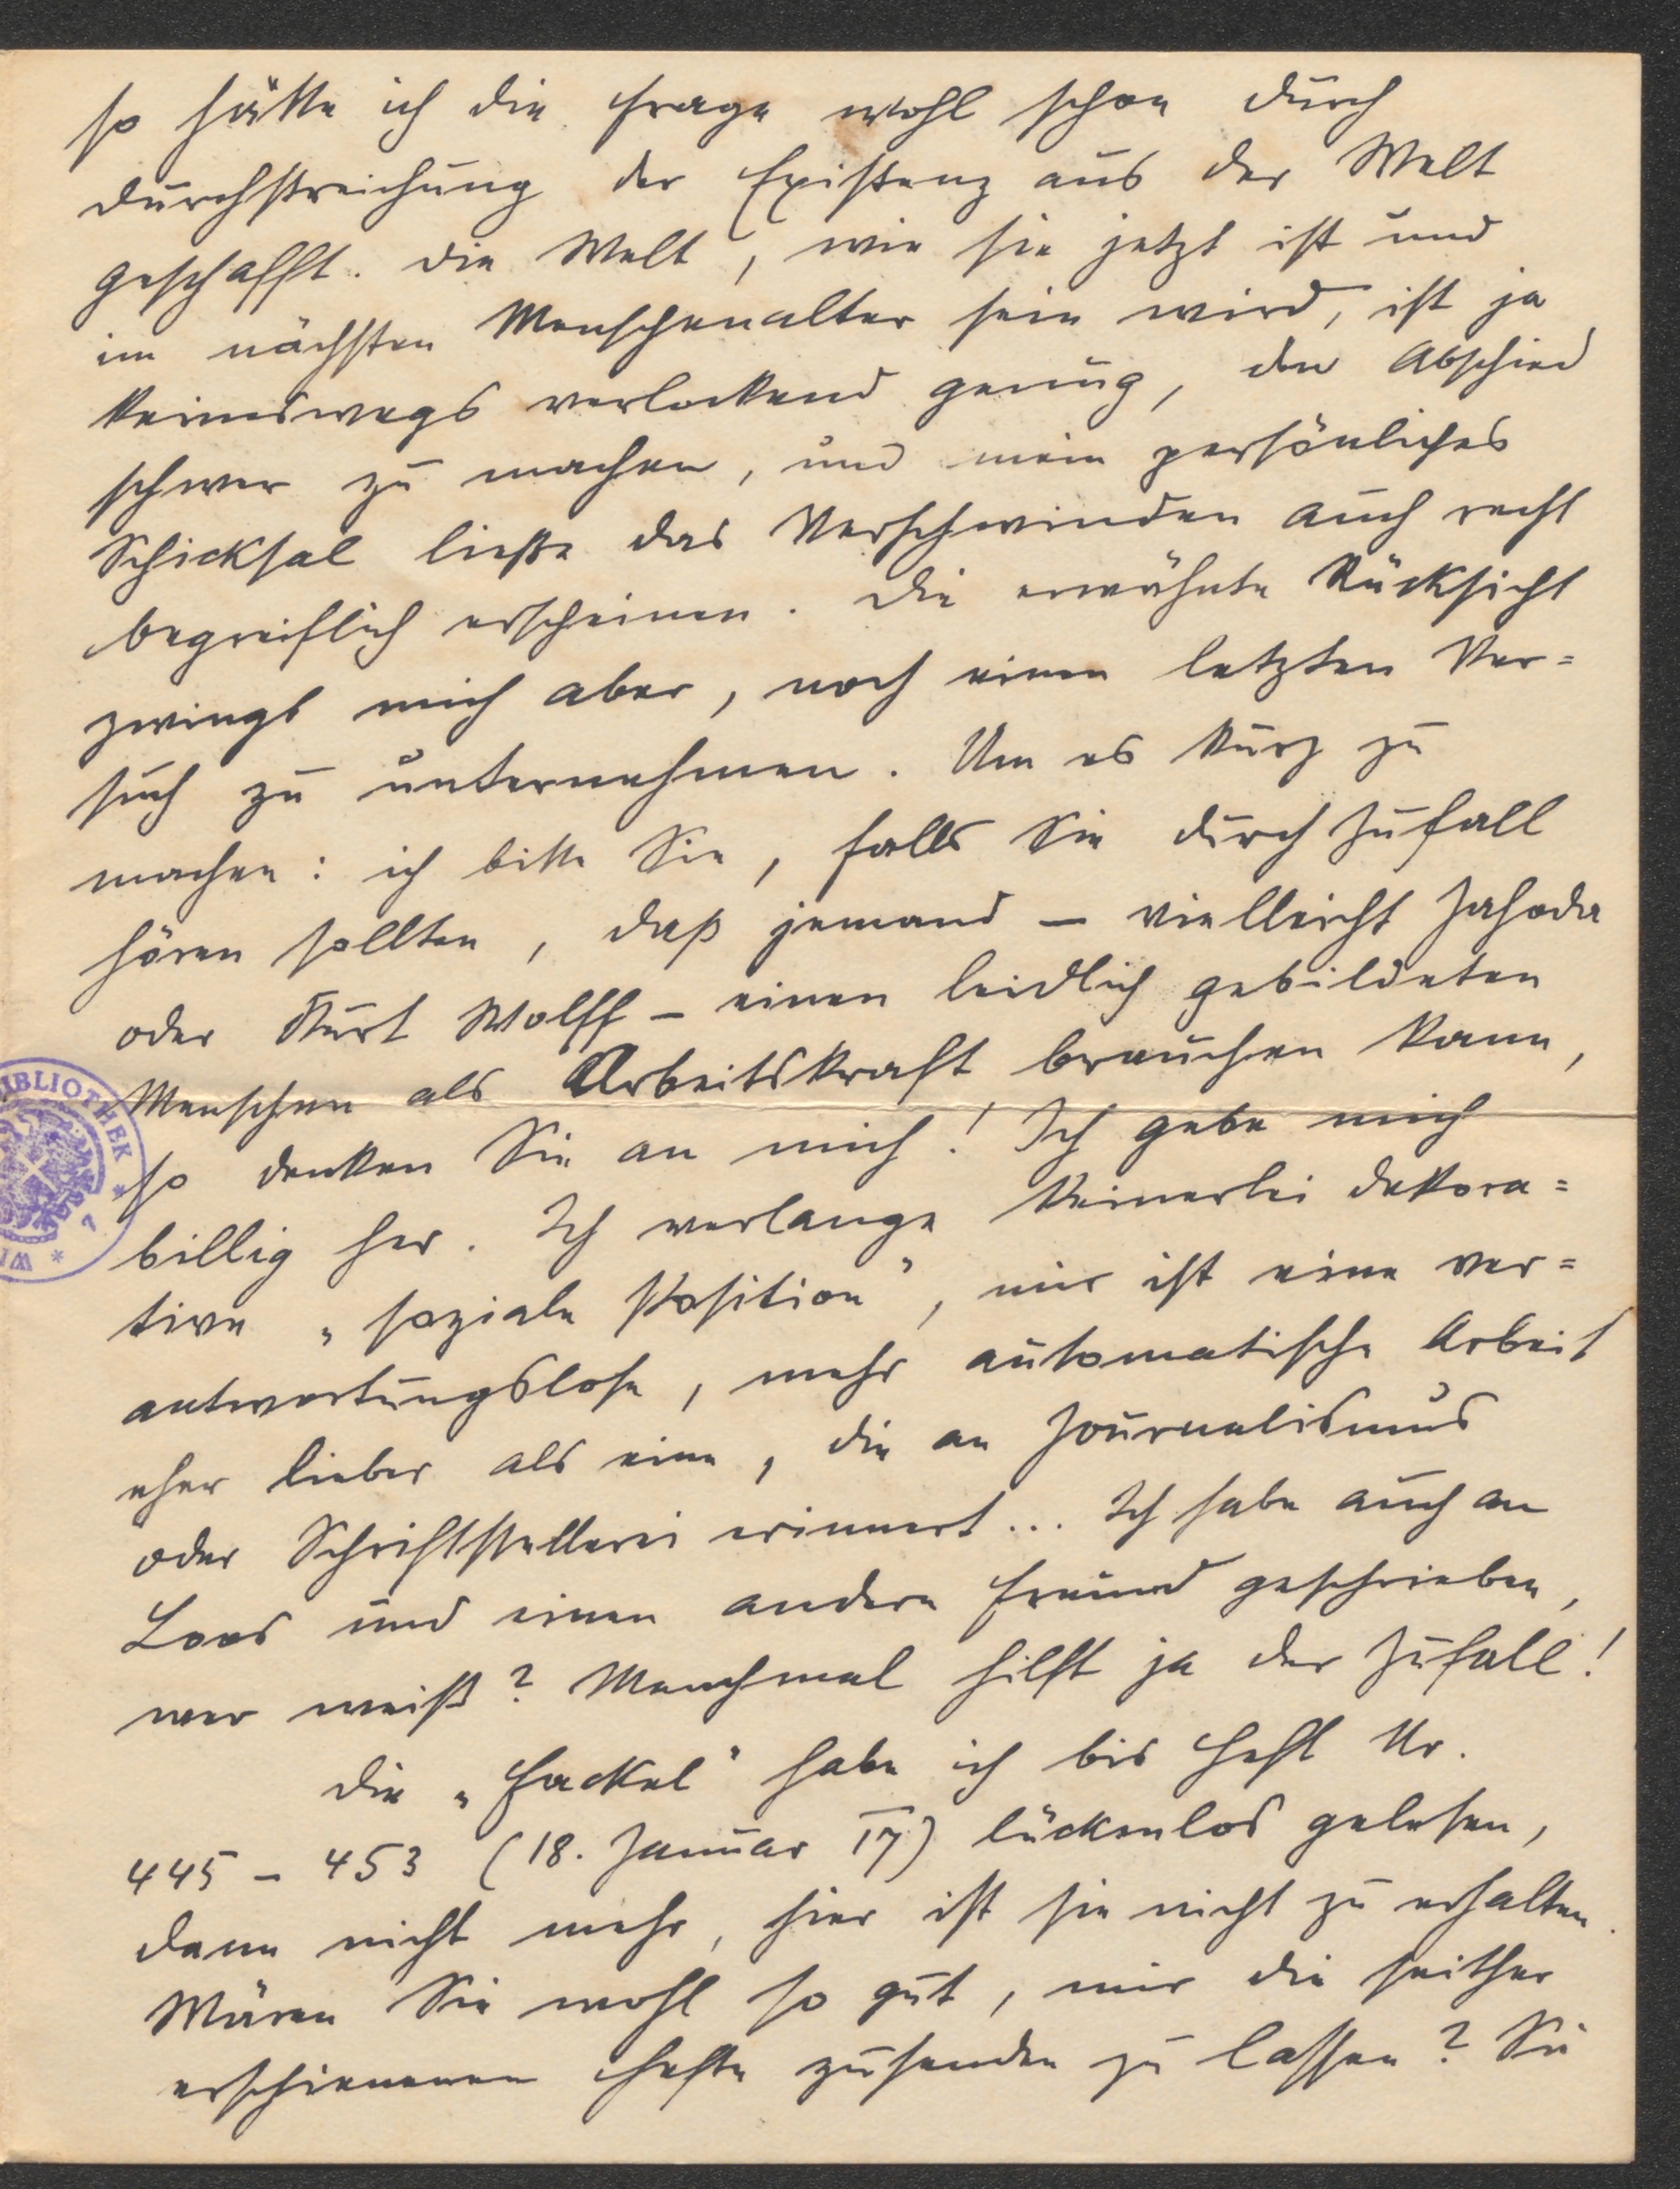 so hätte ich die Frage wohl schon durch
Durchstreichung der Existenz aus der Welt
geschafft. Die Welt, wie sie jetzt ist und
im nächsten Menschenalter sein wird, ist ja
keineswegs verlockend genug, den Abschied
schwer zu machen, und mein persönliches
Schicksal ließe das Verschwinden auch recht
begreiflich erscheinen. Die erwähnte Rücksicht
zwingt mich aber, noch einen letzten Ver=
such zu unternehmen. Um es kurz zu
machen: ich bitte Sie, falls Sie durch Zufall
hören sollten, daß jemand – vielleicht Jahoda
oder Kurt Wolff – einen leidlich gebildeten
Menschen als Arbeitskraft brauchen kann,
so denken Sie an mich! Ich gebe mich
billig her. Ich verlange keinerlei dekora=
tive „soziale Position", mir ist eine ver=
antwortungslose, mehr automatische Arbeit
eher lieber als eine, die an Journalismus
oder Schriftstellerei erinnert... Ich habe auch an
Loos und einen andern Freund geschrieben,
wer weiß? Manchmal hilft ja der Zufall!
Die „Fackel" habe ich bis Heft Nr.
445 – 453 (18. Januar 17) lückenlos gelesen,
dann nicht mehr, hier ist sie nicht zu erhalten.
Wären Sie wohl so gut, mir die seither
erschienenen Hefte zusenden zu lassen? Sie
BIBLIOTHEK